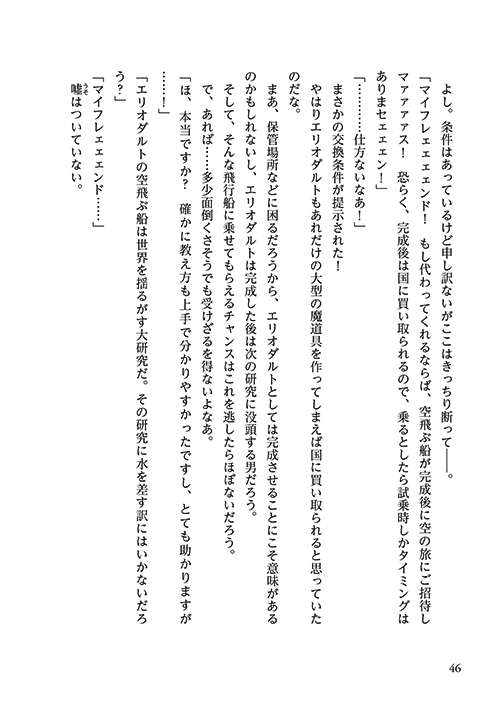 よし。条件はあっているけど申し訳ないがここはきっちり断って――。
「マイフレェェェンド！　もし代わってくれるならば、空飛ぶ船が完成後に空の旅にご招待し
マァァァァス！　恐らく、完成後は国に買い取られるので、乗るとしたら試乗時しかタイミングは
ありまセェェェン！」
「…………仕方ないなあ！」
まさかの交換条件が提示された！
やはりエリオダルトもあれだけの大型の魔道具を作ってしまえば国に買い取られると思っていた
のだな。
まあ、保管場所などに困るだろうから、エリオダルトとしては完成させることにこそ意味がある
のかもしれないし、エリオダルトは完成した後は次の研究に没頭する男だろう。
そして、そんな飛行船に乗せてもらえるチャンスはこれを逃したらほぼないだろう。
で、あれば……多少面倒くさそうでも受けざるを得ないよなあ。
「ほ、本当ですか？　確かに教え方も上手で分かりやすかったですし、とても助かりますが
……！」
「エリオダルトの空飛ぶ船は世界を揺るがす大研究だ。その研究に水を差す訳にはいかないだろ
う？」
「マイフレェェェンド……」
嘘はついていない。
うそ
46